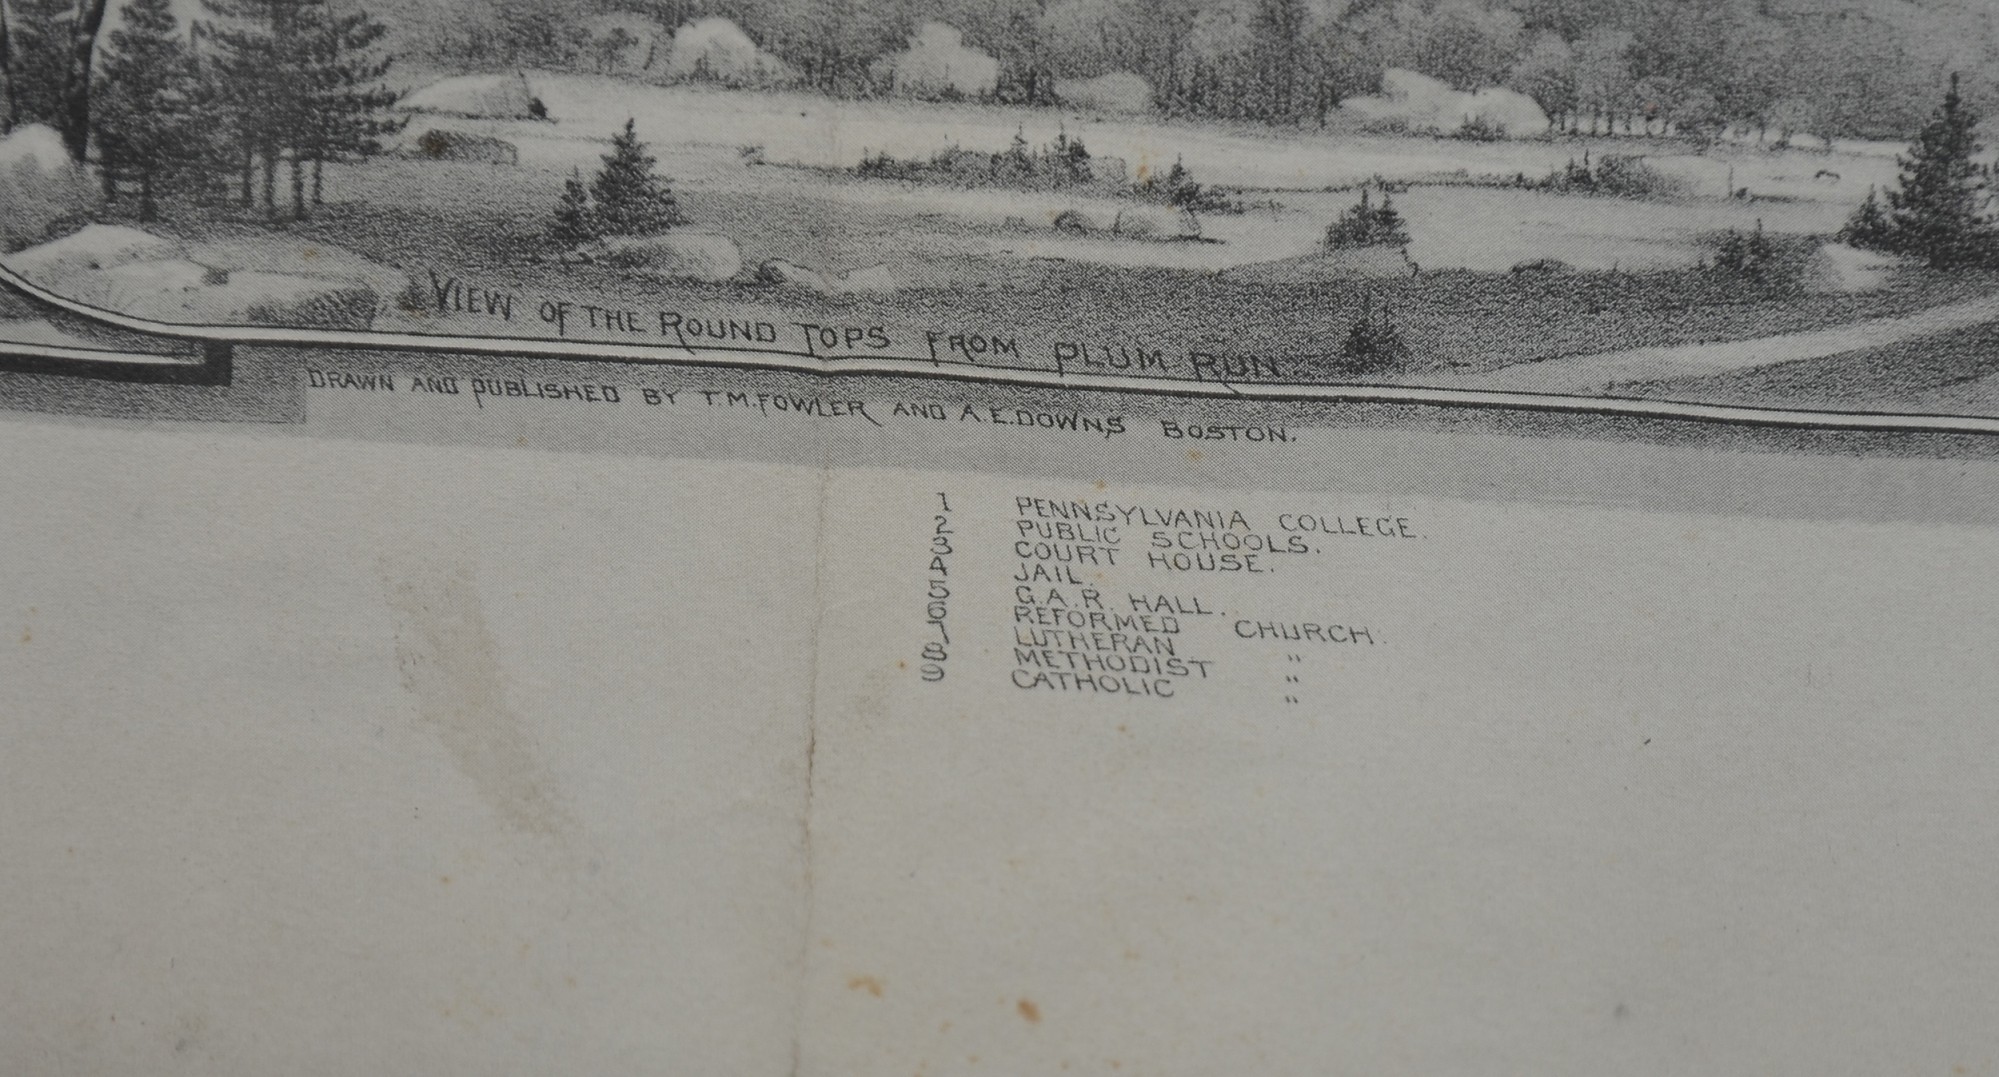 VIEW OF THE ROUND TOPS FROM PLUM RUN
DRAWN AND PUBLISHED BY T.M.FOWLER AND A.E.DOWNS BOSTON.
1 PENNSYLVANIA COLLEGE.
2 PUBLIC SCHOOLS.
3 COURT HOUSE.
4 JAIL.
5 G.A.R. HALL.
6 REFORMED CHURCH.
7 LUTHERAN "
8 METHODIST "
9 CATHOLIC "